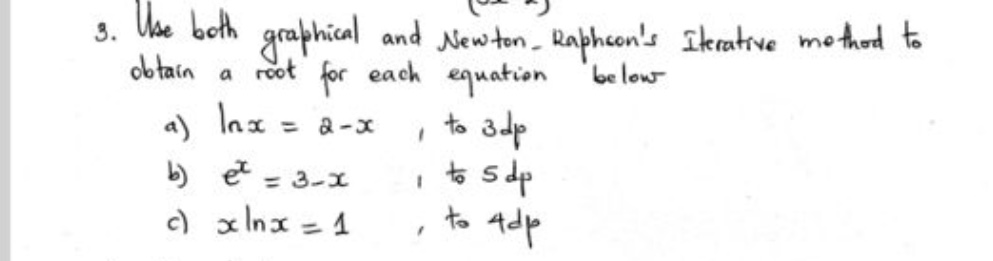 3. Use both graphical and Newton-Raphson's Iterative method to
obtain a root for each equation below
a) lnx = 2-x , to 3dp
b) eˣ = 3-x , to 5dp
c) x lnx = 1 , to 4dp